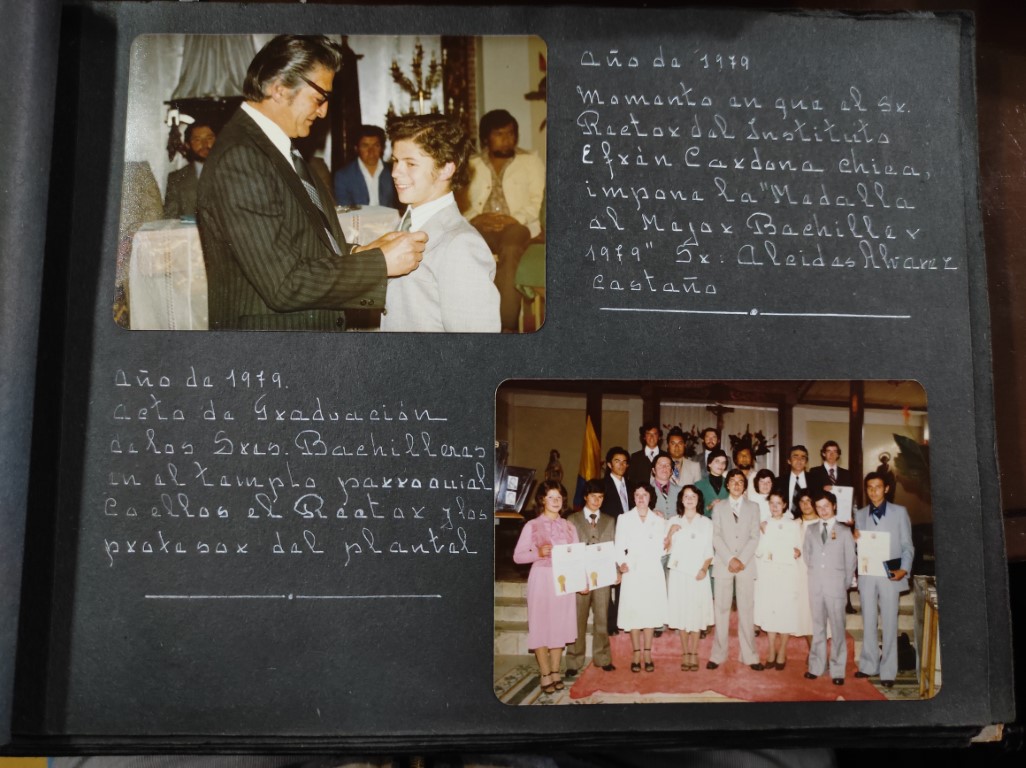 Año de 1979
Momento en que el Sr.
Rector del Instituto
Efrén Cardona Chica,
impone la "Medalla
al Mejor Bachiller
1979" Sr: Alcides Alvarez
Castaño
Año de 1979.
Acto de Graduación
de los Sres. Bachilleres
en el templo parroquial
Co ellos el Rector y los
profesor del plantel